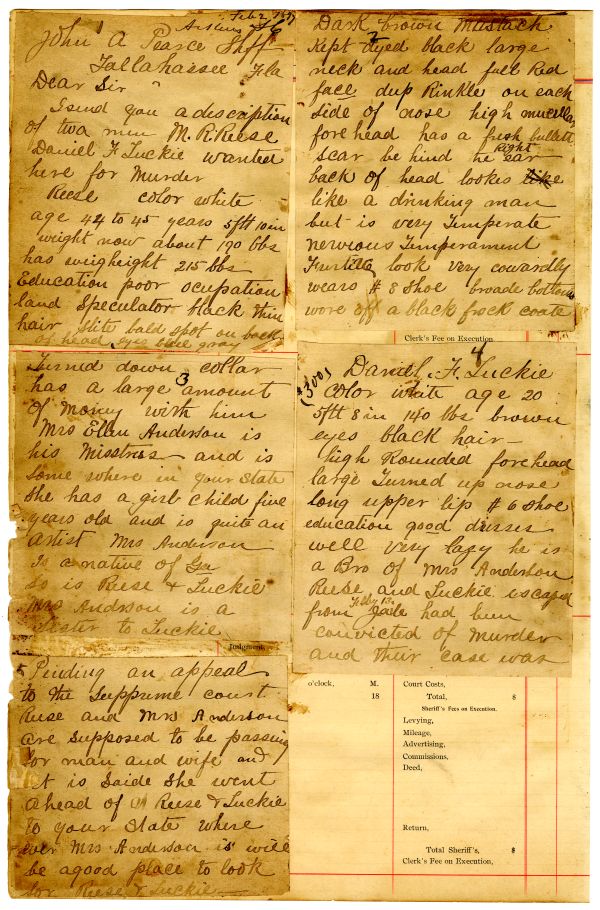 Feb 2
John A Pearce Shff
Tallahassee Fla
Dear Sir
I send you a description
of two men M. R. Reese
Daniel F. Luckie wanted
here for Murder
Reese color white
age 44 to 45 years 5ft 10in
weight now about 190 lbs
has weigheight 215 lbs
Education poor ocupation
land Speculator black thin
hair Slite bald spot on back
of head eyes blue gray
2
Dark brown Mustach
Kept dyed black large
neck and head full Red
face dup Rinkle on each
side of nose high
forehead has a fresh bullett
scar be hind he Right ear
back of head lookes like
like a drinking man
but is very Temperate
nervious Temperament
look very cowardly
wears # 8 shoe broade bottom
wore off a black frock coate
Clerk's Fee on Execution
3
Turned down collar
has a large amount
of Money with him
Mrs Ellen Anderson is
his Misstress and is
some where in your State
She has a girl child five
years old and is quite an
artist Mrs Anderson
Is a native of Ga
so is Reese & Luckie
Mrs Anderson is a
Sister to Luckie
Judgment,
4
Daniel F. Luckie
color white age 20
5ft 8 in 140 lbs brown
eyes black hair—
high Rounded forehead
large Turned up nose
long upper lip # 6 shoe
education good dresses
well very lazy he is
a Bro of Mrs Anderson
Reese and Luckie escaped
from Jaile had been
convicted of murder
and their case was
5
Pending an appeal
to the Suppreme court
Reese and Mrs Anderson
are supposed to be passing
for man and wife and
it is saide she went
ahead of Reese & Luckie
to your State where
ever Mrs Anderson is will
be a good place to look
for Reese & Luckie
o'clock, M.
18
Court Costs,
Total, $
Sheriff's Fees on Execution.
Levying,
Mileage,
Advertising,
Commissions,
Deed,
Return,
Total Sheriff's, $
Clerk's Fee on Execution,